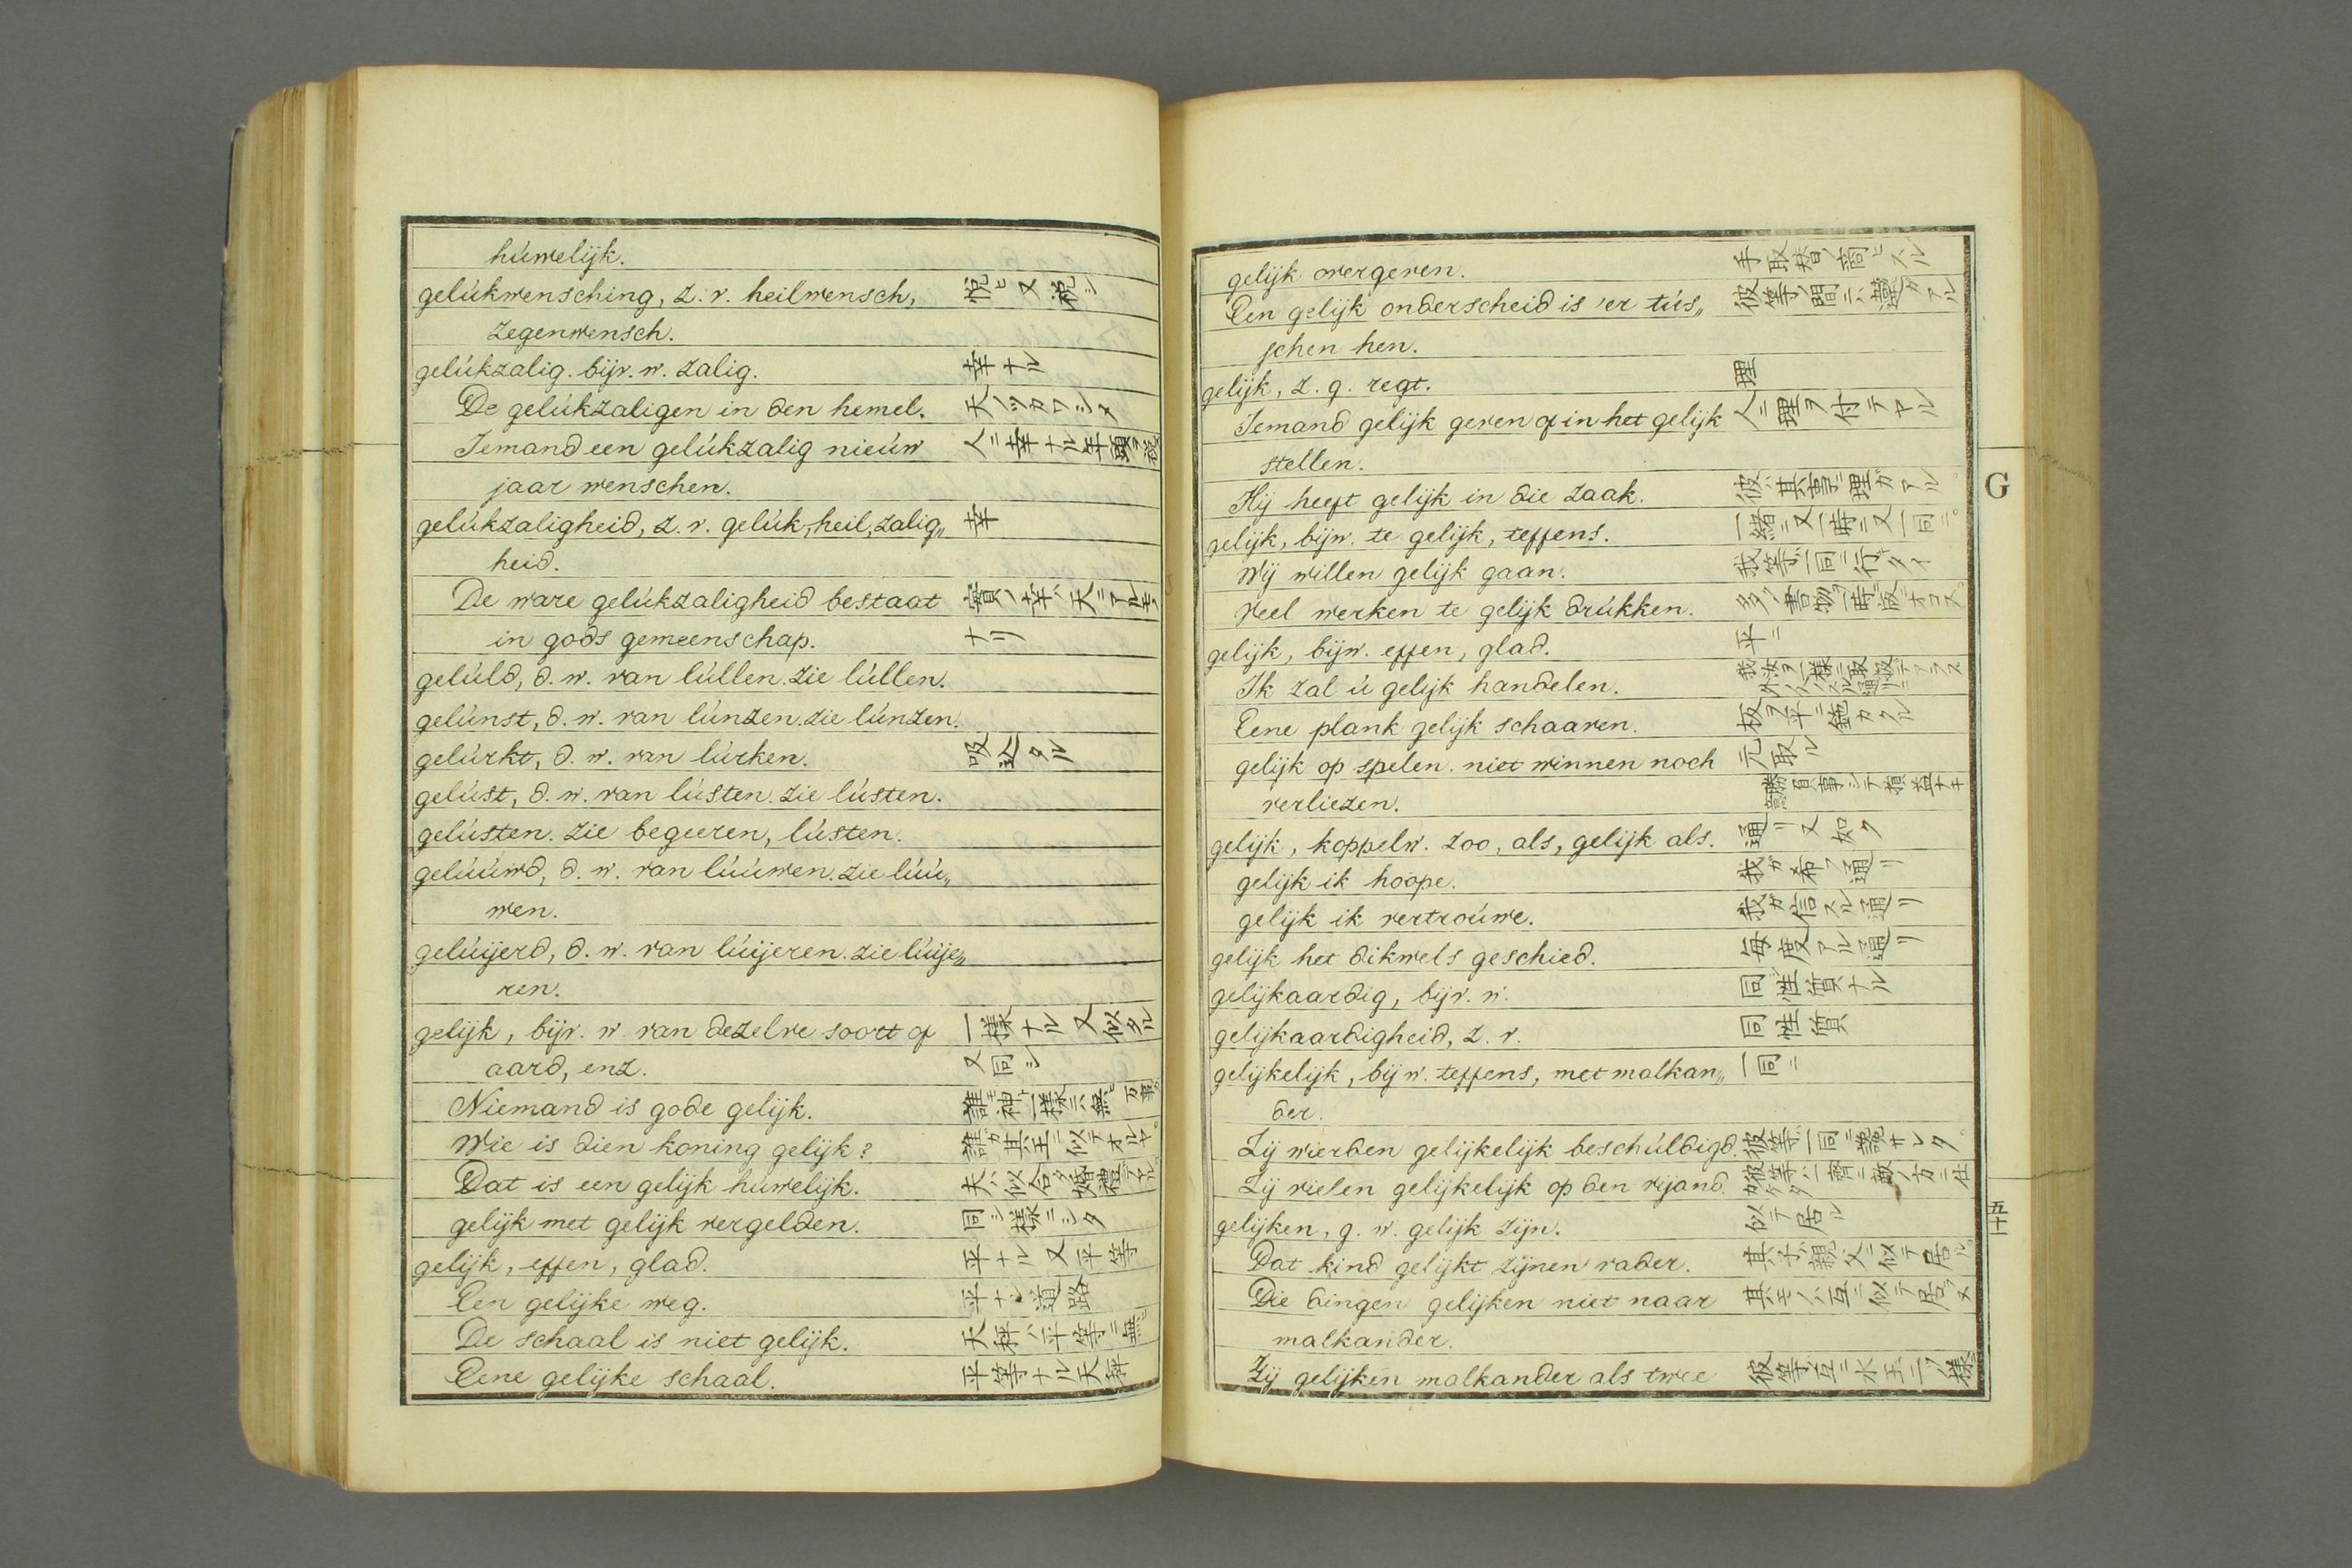 húwelijk.
gelúkwensching, z. v. heilwensch, 悦ヒ又祝シ
zegenwensch.
gelúkzalig. bijv. w. zalig. 幸ナル
De gelúkzaligen in den hemel. 天ノツカワシメ
Iemand een gelúkzalig nieúw 人ニ幸ナル年頭ヲ祝
jaar wenschen.
gelúkzaligheid, z. v. gelúk, heil, zalig„ 幸
heid.
De ware gelúkzaligheid bestaat 實ノ幸ハ天ニアルモノ
in gods gemeenschap. ナリ
gelúld, d. w. van lúllen. zie lúllen.
gelúnst, d. w. van lúnzen. zie lúnzen.
gelúrkt, d. w. van lúrken. 吸込タル
gelúst, d. w. van lústen. zie lústen.
gelústen. zie begeeren, lústen.
gelúúwd, d. w. van lúúwen. zie lúú„
wen.
gelúijerd, d. w. van lúijeren. zie lúije„
ren.
gelijk, bijv. w. van dezelve soort of 一樣ナル又似タル
aard, enz. 又同シ
Niemand is gode gelijk. 誰モ神ト一樣ニハ無ヒ万事
Wie is dien koning gelijk? 誰カ其王ニ似テオルヤ。
Dat is een gelijk húwelijk. 夫ハ似合タ婚禮デアル。
gelijk met gelijk vergelden. 同シ樣ニシタ
gelijk, effen, glad. 平ナル又平等
Een gelijke weg. 平ナル道路
De schaal is niet gelijk. 天秤ハ平等ニ無ヒ
Eene gelijke schaal. 平等ナル天秤
gelijk overgeven. 手取替ノ商ヒスル
Een gelijk onderscheid is 'er tús„ 彼等ノ間ニハ違ガアル
schen hen.
gelijk, z. g. regt. 理
Iemand gelijk geven of in het gelijk 人ニ理ヲ付テヤル
stellen.
Hij heeft gelijk in die zaak. 彼ハ其事ニ理ガアル。
G
gelijk, bijw. te gelijk, teffens. 一緒ニ又一時ニ又一同ニ。
Wij willen gelijk gaan. 我等ハ一同ニ行キタイ
Veel werken te gelijk drúkken. 多ノ書物ヲ一時ニ版ニオコス。
gelijk, bijw. effen, glad. 平ニ
Ik zal ú gelijk handelen. 我汝ヲ一樣ニ取扱テアラス
Eene plank gelijk schaaven. 板ヲ平ニ鉋カクル
gelijk op spelen. niet winnen noch 元取ル
verliezen. 勝負事シテ損益ナキ
gelijk, koppelw. zoo, als, gelijk als. 通リ又如ク
gelijk ik hoope. 我ガ希フ通リ
gelijk ik vertroúwe. 我ガ信スル通リ
gelijk het dikwels geschied. 毎度アル通リ
gelijkaardig, bijv. w. 同性質ナル
gelijkaardigheid, z. v. 同性質
gelijkelijk, bijw. teffens, met malkan„ 一同ニ
der.
Zij wierden gelijkelijk beschúldigd. 彼等ハ一同ニ讒サレタ。
Zij vielen gelijkelijk op den vijand. 彼等ハ一齊ニ敵ノ方ニ仕カケタ
五十一
gelijken, g. w. gelijk zijn. 似テ居ル
Dat kind gelijkt zijnen vader. 其子ハ親父ニ似テ居ル。
Die dingen gelijken niet naar 其モノハ互ニ似テ居ラヌ
malkander.
Zij gelijken malkander als twee 彼等ハ互ニ水玉二ツノ樣